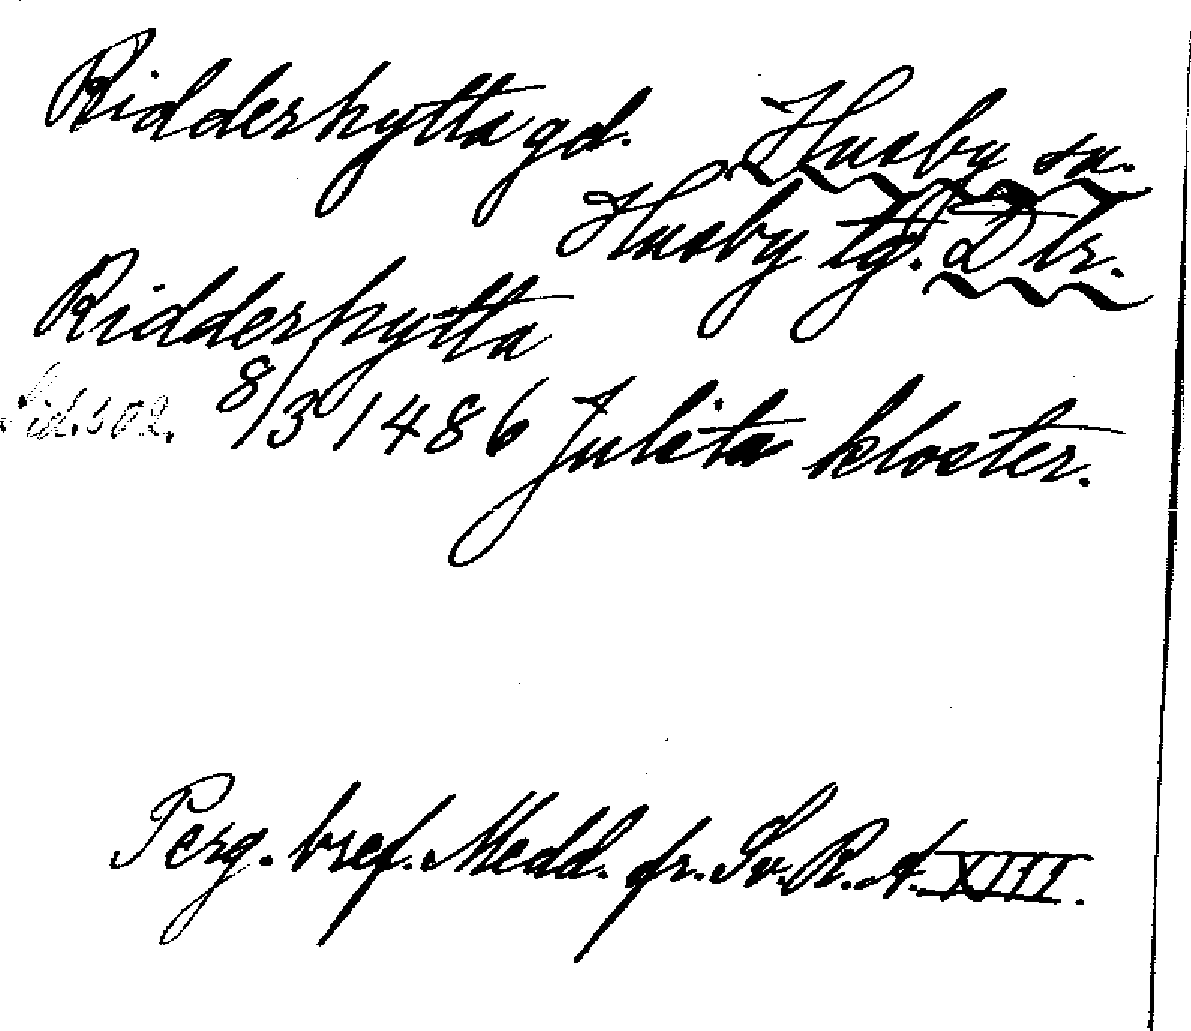 Ridderhytta gd. Husby sn.
Husby tg. Dlr.
Ridderhytta
Sid. 302. 8/3 1486 Julita kloster.
Perg. bref. Medd. fr. Sv. R. A. XIII.